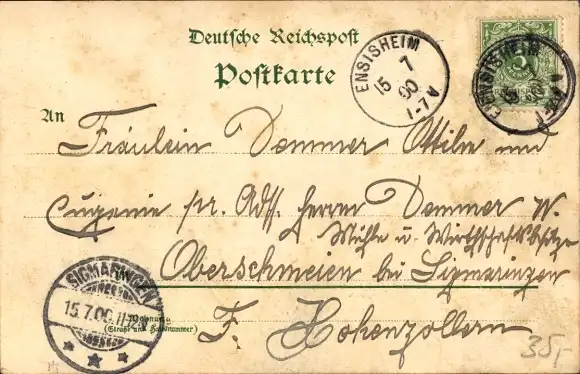 Deutsche Reichspost
Postkarte
ENSISHEIM
15 7
00
1-7V
ENSISHEIM
An
Fräulein Demmer Ottilie und
Eugenie pr. Adss. Herrn Demmer W.
Mühle u. Wirthschaftsbesitzer
Oberschmeien bei Sigmaringen
SIGMARINGEN
15.7.00.11-12V
Wohnung
(Straße und Hausnummer)
F. Hohenzollern
35,-